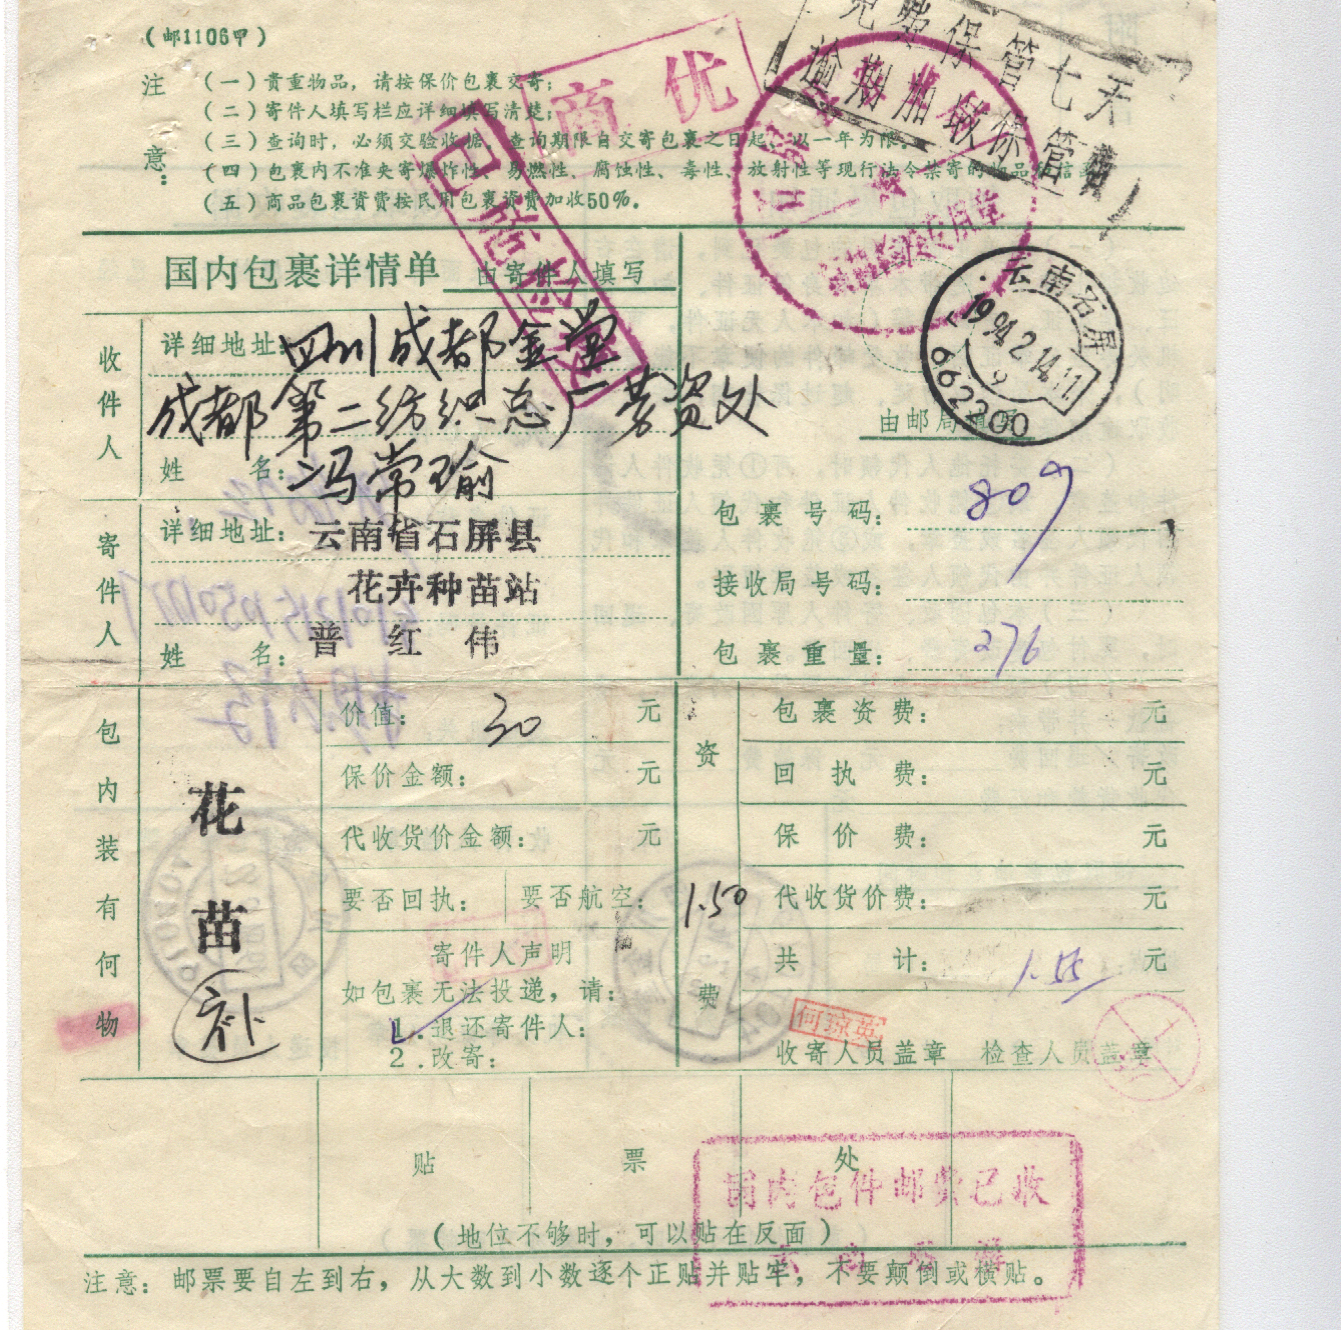 (邮1106甲)
注意:
(一)贵重物品，请按保价包裹交寄;
(二)寄件人填写栏应详细填写清楚;
(三)查询时，必须交验收据，查询期限自交寄包裹之日起，以一年为限。
(四)包裹内不准夹寄爆炸性、易燃性、腐蚀性、毒性、放射性等现行法令禁寄的物品和信函
(五)商品包裹资费按民用包裹资费加收50%.
商优
免费保管七天
逾期加收保管费
国内包裹详情单 由寄件人填写
云南石屏
1994.2.14.11
662200
收件人
详细地址: 四川成都金堂
成都第二纺织总厂劳资处
姓名: 冯常瑜
由邮局填写
包裹号码: 809
接收局号码:
包裹重量: 276
寄件人
详细地址: 云南省石屏县
花卉种苗站
姓名: 普红伟
包内装有何物
花苗
价值: 30 元
保价金额: 元
代收货价金额: 元
要否回执: 要否航空:
寄件人声明
如包裹无法投递，请:
1.退还寄件人:
2.改寄:
资费 1.50
包裹资费: 元
回执费: 元
保价费: 元
代收货价费: 元
共计: 1.55 元
何琼英
收寄人员盖章 检查人员盖章
贴票处
(地位不够时，可以贴在反面)
国内包件邮费已收
云南石屏
注意: 邮票要自左到右，从大数到小数逐个正贴并贴牢，不要颠倒或横贴。